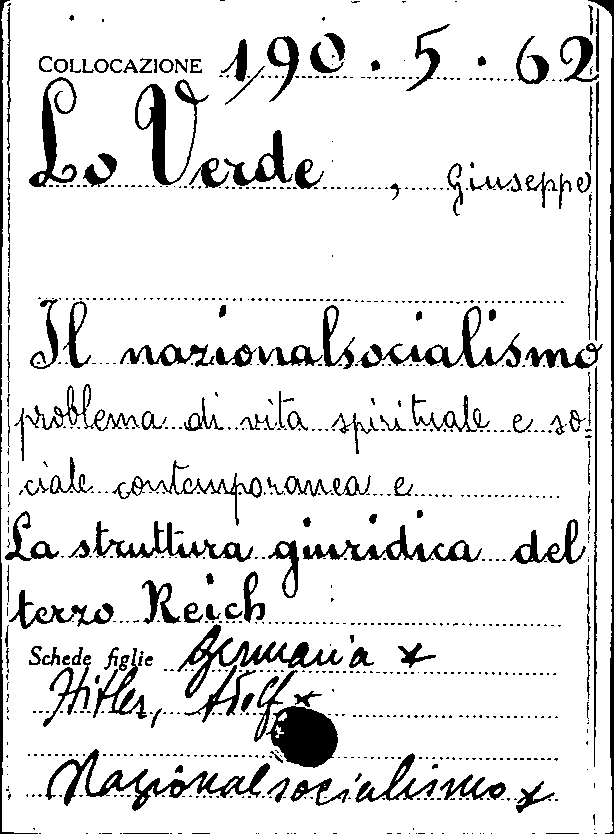 COLLOCAZIONE 190.5.62
Lo Verde, Giuseppe
Il nazionalsocialismo
problema di vita spirituale e so-
ciale contemporanea e
La struttura giuridica del
terzo Reich
Schede figlie Germania *
Hitler, Adolf *
Nazionalsocialismo *